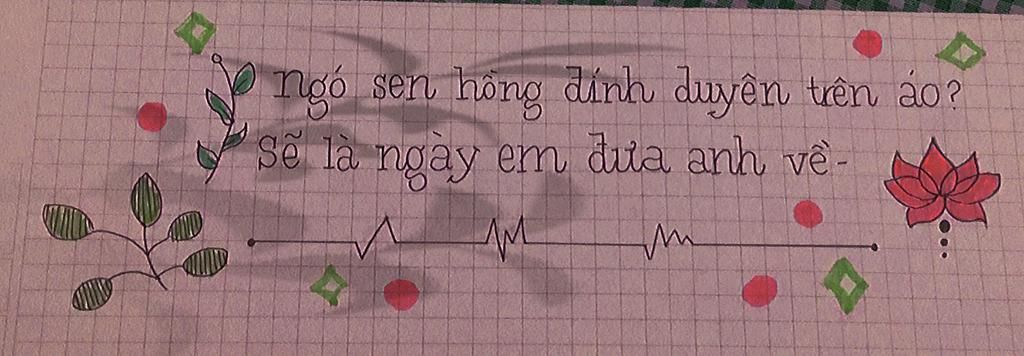 ngó sen hồng đính duyên trên áo?
Sẽ là ngày em đưa anh về-